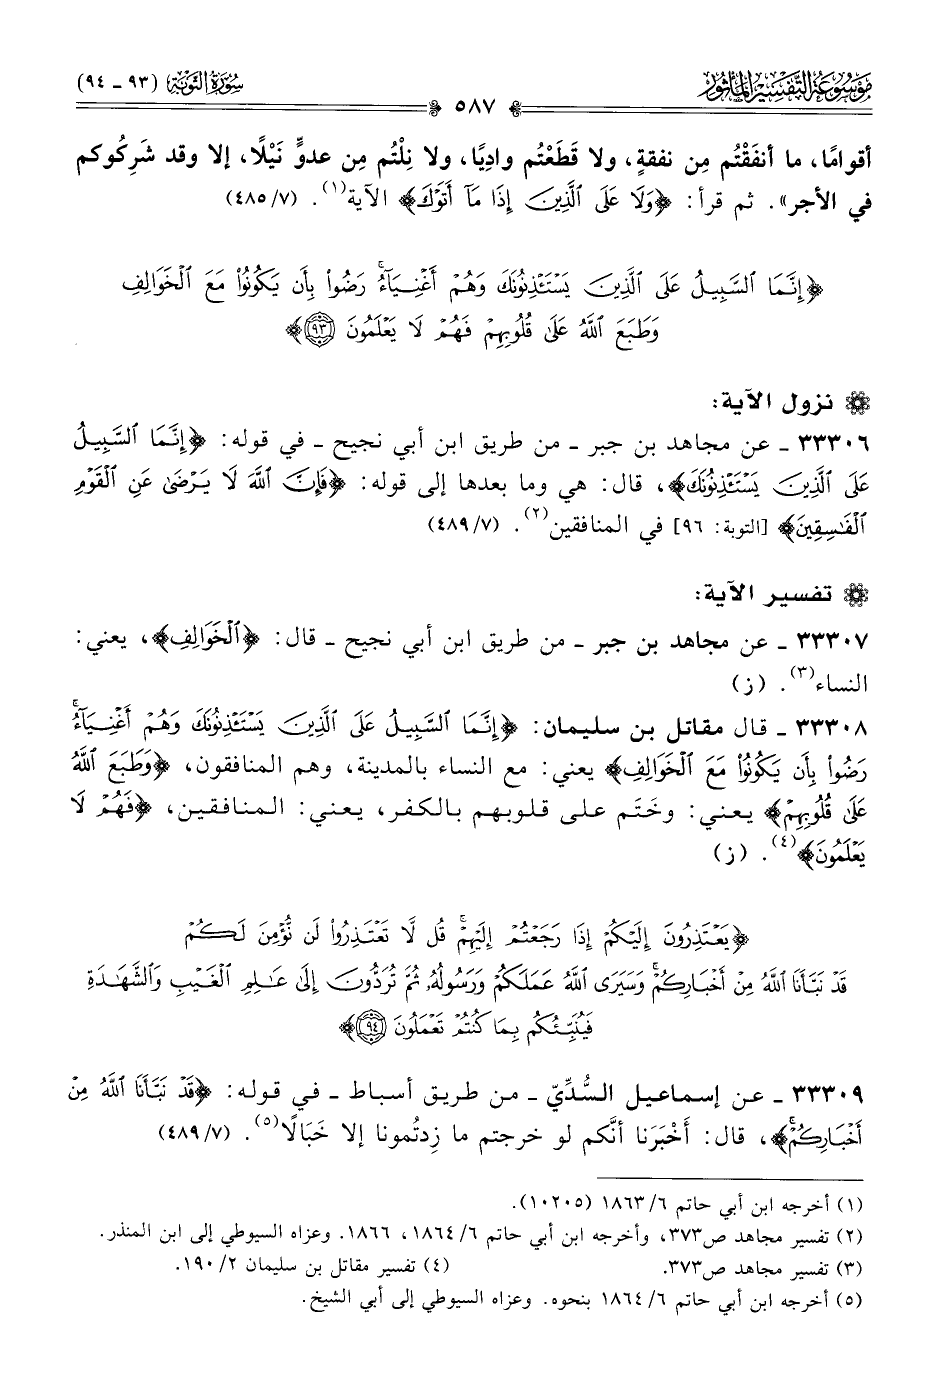 مَوْسُوعَة التَّفْسِير المَأْثُور
٥٨٧
سُورَةُ التَّوْبَة (٩٣ ـ ٩٤)
أقوامًا، ما أنفَقْتُم مِن نفقةٍ، ولا قَطَعْتُم وادِيًا، ولا نِلْتُم مِن عدوٍّ نَيْلًا، إلا وقد شَرِكُوكم
في الأجر». ثم قرأ: ﴿وَلَا عَلَى ٱلَّذِينَ إِذَا مَآ أَتَوْكَ﴾ الآية(١). (٧/ ٤٨٥)
﴿إِنَّمَا ٱلسَّبِيلُ عَلَى ٱلَّذِينَ يَسْتَـْٔذِنُونَكَ وَهُمْ أَغْنِيَآءُ ۚ رَضُوا۟ بِأَن يَكُونُوا۟ مَعَ ٱلْخَوَالِفِ
وَطَبَعَ ٱللَّهُ عَلَىٰ قُلُوبِهِمْ فَهُمْ لَا يَعْلَمُونَ ٩٣﴾
نزول الآية:
٣٣٣٠٦ ـ عن مجاهد بن جبر ـ من طريق ابن أبي نجيح ـ في قوله: ﴿إِنَّمَا ٱلسَّبِيلُ
عَلَى ٱلَّذِينَ يَسْتَـْٔذِنُونَكَ﴾، قال: هي وما بعدها إلى قوله: ﴿فَإِنَّ ٱللَّهَ لَا يَرْضَىٰ عَنِ ٱلْقَوْمِ
ٱلْفَـٰسِقِينَ﴾ [التوبة: ٩٦] في المنافقين(٢). (٧/ ٤٨٩)
تفسير الآية:
٣٣٣٠٧ ـ عن مجاهد بن جبر ـ من طريق ابن أبي نجيح ـ قال: ﴿ٱلْخَوَالِفِ﴾، يعني:
النساء(٣). (ز)
٣٣٣٠٨ ـ قال مقاتل بن سليمان: ﴿إِنَّمَا ٱلسَّبِيلُ عَلَى ٱلَّذِينَ يَسْتَـْٔذِنُونَكَ وَهُمْ أَغْنِيَآءُ ۚ
رَضُوا۟ بِأَن يَكُونُوا۟ مَعَ ٱلْخَوَالِفِ﴾ يعني: مع النساء بالمدينة، وهم المنافقون، ﴿وَطَبَعَ ٱللَّهُ
عَلَىٰ قُلُوبِهِمْ﴾ يعني: وخَتَم على قلوبهم بالكفر، يعني: المنافقين، ﴿فَهُمْ لَا
يَعْلَمُونَ﴾(٤). (ز)
﴿يَعْتَذِرُونَ إِلَيْكُمْ إِذَا رَجَعْتُمْ إِلَيْهِمْ ۚ قُل لَّا تَعْتَذِرُوا۟ لَن نُّؤْمِنَ لَكُمْ
قَدْ نَبَّأَنَا ٱللَّهُ مِنْ أَخْبَارِكُمْ ۚ وَسَيَرَى ٱللَّهُ عَمَلَكُمْ وَرَسُولُهُۥ ثُمَّ تُرَدُّونَ إِلَىٰ عَـٰلِمِ ٱلْغَيْبِ وَٱلشَّهَـٰدَةِ
فَيُنَبِّئُكُم بِمَا كُنتُمْ تَعْمَلُونَ ٩٤﴾
٣٣٣٠٩ ـ عن إسماعيل السُّدِّيّ ـ من طريق أسباط ـ في قوله: ﴿قَدْ نَبَّأَنَا ٱللَّهُ مِنْ
أَخْبَارِكُمْ ۚ﴾، قال: أَخْبَرَنا أنَّكم لو خرجتم ما زِدتُمونا إلا خَبَالًا(٥). (٧/ ٤٨٩)
(١) أخرجه ابن أبي حاتم ٦/ ١٨٦٣ (١٠٢٠٥).
(٢) تفسير مجاهد ص٣٧٣، وأخرجه ابن أبي حاتم ٦/ ١٨٦٤، ١٨٦٦. وعزاه السيوطي إلى ابن المنذر.
(٣) تفسير مجاهد ص٣٧٣. (٤) تفسير مقاتل بن سليمان ٢/ ١٩٠.
(٥) أخرجه ابن أبي حاتم ٦/ ١٨٦٤ بنحوه. وعزاه السيوطي إلى أبي الشيخ.